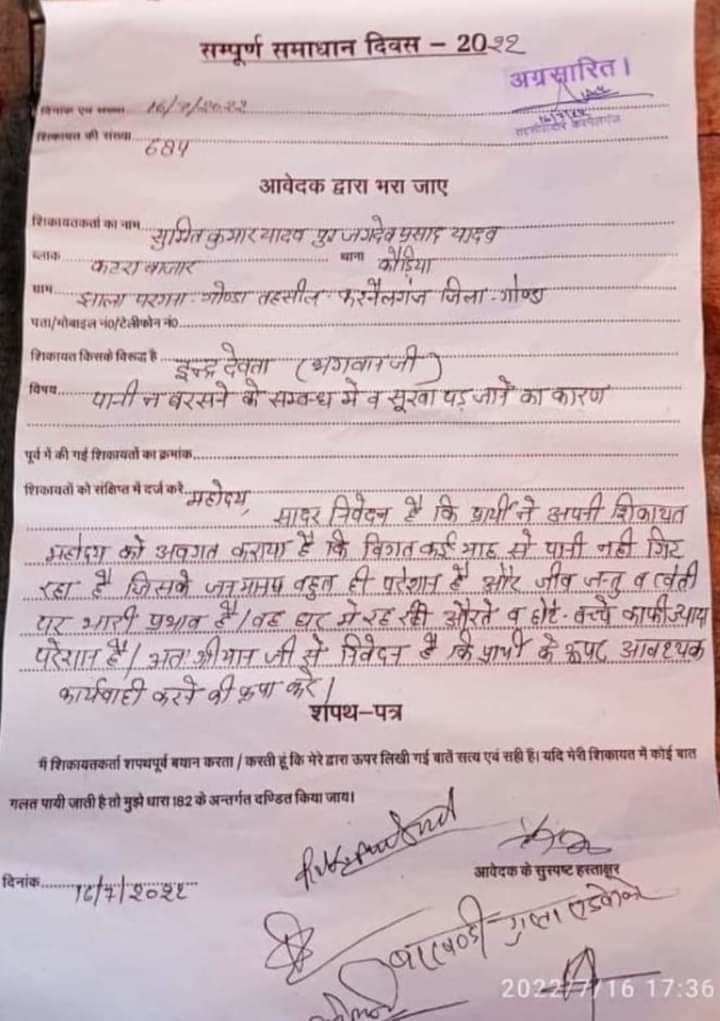 सम्पूर्ण समाधान दिवस – 2022
अग्रसारित।
दिनांक एवं समय 16/7/2022
शिकायत की संख्या
आवेदक द्वारा भरा जाए
शिकायतकर्ता का नाम सुमित कुमार यादव पुत्र जगदेव प्रसाद यादव
ब्लाक कटरा बाजार थाना कौड़िया
ग्राम झाला परगना - गोण्डा तहसील - करनैलगंज जिला - गोण्डा
पता/मोबाइल नं0/टेलीफोन नं0
शिकायत किसके विरूद्ध है इन्द्र देवता (भगवान जी)
विषय पानी न बरसने के सम्बन्ध में व सूखा पड़ जाने का कारण
पूर्व में की गई शिकायतों का क्रमांक
शिकायतों को संक्षिप्त में दर्ज करे महोदय,
सादर निवेदन है कि प्रार्थी ने अपनी शिकायत
महोदय को अवगत कराया है कि विगत कई माह से पानी नहीं गिर
रहा है जिसके जनमानष बहुत ही परेशान है और जीव जन्तु व खेती
पर भारी प्रभाव है / वह घर में रह रही औरते व छोटे-बच्चे काफी ज्याद
परेशान है / अतः श्रीमान जी से निवेदन है कि प्रार्थी के ऊपर आवश्यक
कार्यवाही करने की कृपा करें /
शपथ–पत्र
मैं शिकायतकर्ता शपथपूर्व बयान करता / करती हूं कि मेरे द्वारा ऊपर लिखी गई बातें सत्य एवं सही है। यदि मेरी शिकायत में कोई बात
गलत पायी जाती है तो मुझे धारा 182 के अन्तर्गत दण्डित किया जाय।
आवेदक के सुस्पष्ट हस्ताक्षर
दिनांक 16/7/2022
2022/7/16 17:36